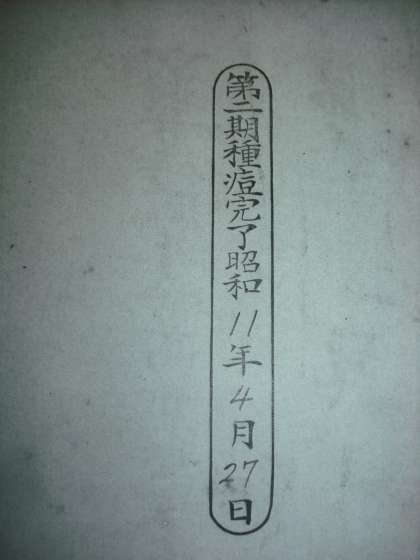 第二期種痘完了昭和11年4月27日